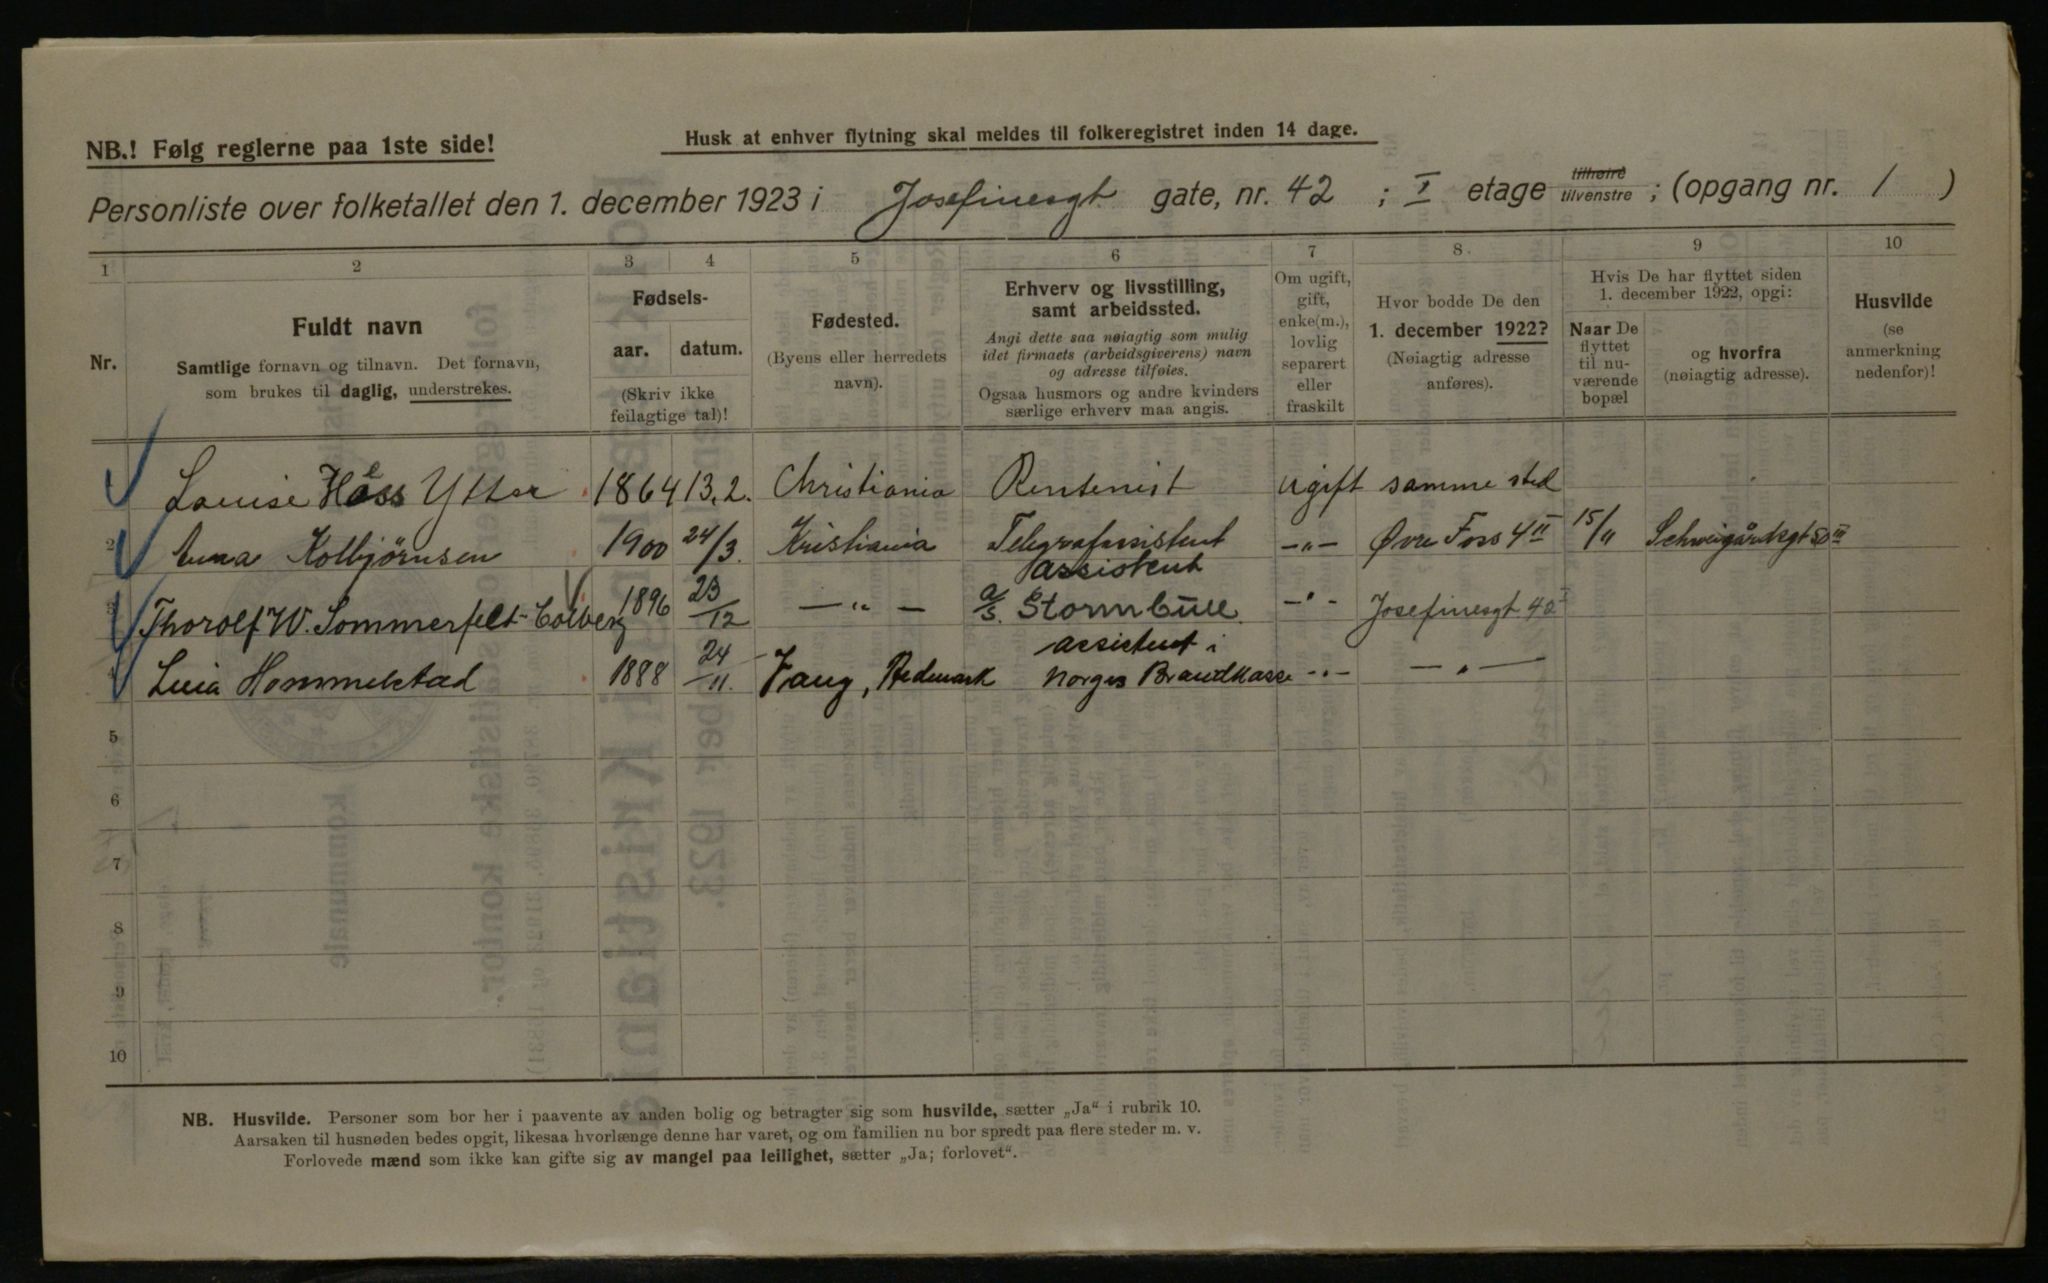 NB.! Følg reglerne paa 1ste side!
Husk at enhver flytning skal meldes til folkeregistret inden 14 dage.
Personliste over folketallet den 1. december 1923 i Josefinesgt gate, nr. 42 ; I etage tilhøire tilvenstre ; (opgang nr. 1 )
1 2 3 4 5 6 7 8. 9 10
Nr.
Fuldt navn
Samtlige fornavn og tilnavn. Det fornavn,
som brukes til daglig, understrekes.
Fødsels-
aar. datum.
(Skriv ikke
feilagtige tal)!
Fødested.
(Byens eller herredets
navn).
Erhverv og livsstilling,
samt arbeidssted.
Angi dette saa nøiagtig som mulig
idet firmaets (arbeidsgiverens) navn
og adresse tilføies.
Ogsaa husmors og andre kvinders
særlige erhverv maa angis.
Om ugift,
gift,
enke(m.),
lovlig
separert
eller
fraskilt
Hvor bodde De den
1. december 1922?
(Nøiagtig adresse
anføres).
Hvis De har flyttet siden
1. december 1922, opgi:
Naar De
flyttet
til nu-
værende
bopæl
og hvorfra
(nøiagtig adresse).
Husvilde
(se
anmerkning
nedenfor)!
Louise Hess Ytter 1864 13.2. Christiania Rentenist ugift samme sted
2 Anna Kolbjørnsen 1900 24/3. Kristiania Telegrafassistent -„- Øvre Foss 4 II 15/11 Schweigårdsgt 50 III
assistent
3 Thorolf W. Sommerfelt-Colberg 1896 23/12 -„- a/s. Stormbull -„- Josefinesgt. 42 I
assistent i
4 Lucia Hommelstad 1888 24/11. Vang, Hedemark Norges Brandkasse -„- -„-
5
6
7
8
9
10
NB. Husvilde. Personer som bor her i paavente av anden bolig og betragter sig som husvilde, sætter „Ja“ i rubrik 10.
Aarsaken til husnøden bedes opgit, likesaa hvorlænge denne har varet, og om familien nu bor spredt paa flere steder m. v.
Forlovede mænd som ikke kan gifte sig av mangel paa leilighet, sætter „Ja; forlovet“.